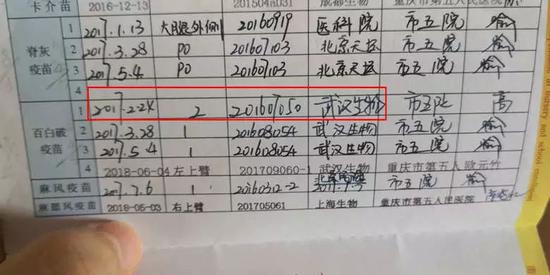 卡介苗 2016-12-13 2015046031 成都生物 重庆市第五人民医院
脊灰疫苗
1 2017.1.13 大腿外侧 20160919 医科院 市五院
2 2017.3.28 PO 201607103 北京天坛 市五院
3 2017.5.4 PO 201607103 北京天坛 市五院
4
百白破疫苗
1 2017.2.24 2 201607050 武汉生物 市五院 高
2 2017.3.28 1 201608054 武汉生物 市五院
3 2017.5.4 1 201608054 武汉生物 市五院
4 2018-06-04 左上臂 201709060-1 武汉生物 重庆市第五人 欧元竹
麻风疫苗 2017.7.6 1 市五院
麻腮风疫苗 2018-06-03 右上臂 201705061 上海生物 重庆市第五人民医院